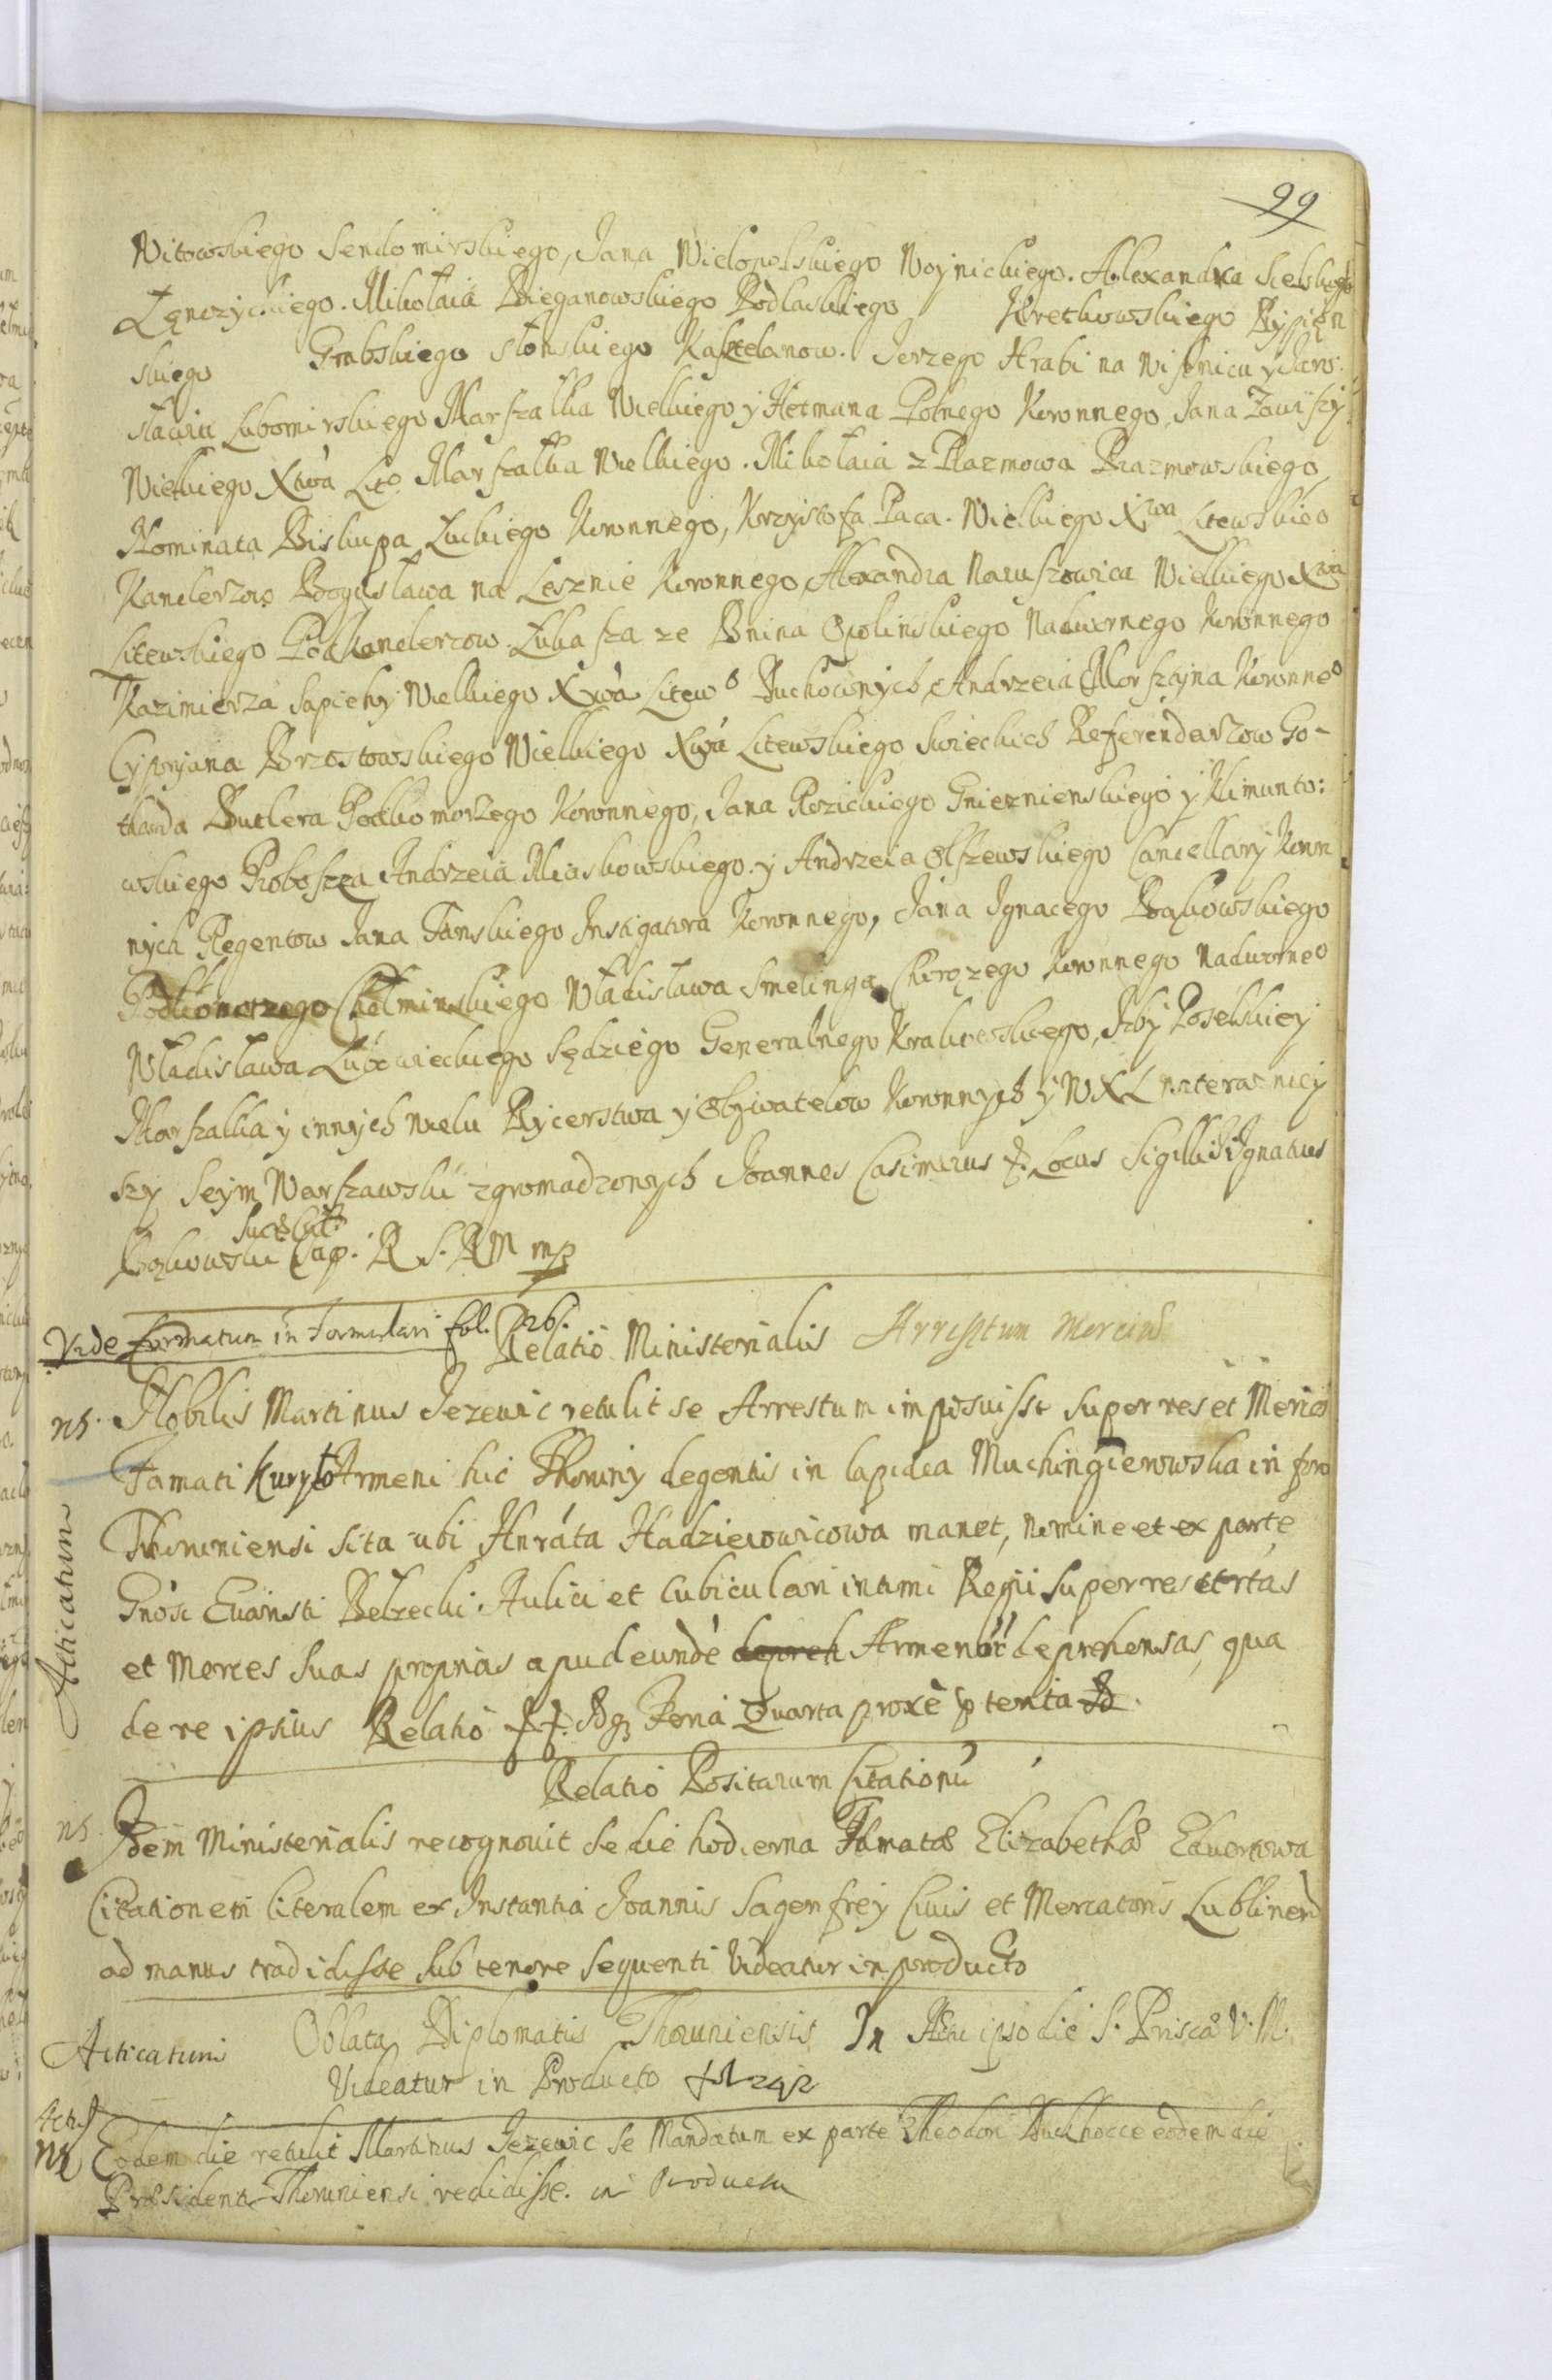 99
Witowskiego Sendomirskiego, Jana Wielopolskiego Woynickiego. Alexandra Sielskiego
Łęnczyckiego. Mikołaia Bieganowskiego Podlaskiego Kretkowskiego Rypien
skiego Grabskiego Słonskiego Kasztelanow. Jerzego Hrabi na Wisnicu y Jaro:
sławiu Lubomirskiego Marszałka Wielkiego y Hetmana Polnego Koronnego, Jana Zawiszy
Wielkiego Xtwa Lito Marszałka Wielkiego. Mikołaia z Prazmowa Prazmowskiego
Nominata Biskupa Luckiego Koronnego, Krzysztofa Paca. Wielkiego Xtwa Litewskieo
Kanclerzow Bogusława na Lesznie Koronnego Alexandra Naruszowica Wielkiego Xtwa
Litewskiego Podkanclerzow. Łukasza ze Bnina Opolinskiego Nadwornego Koronnego
Kazimierza Sapiehy Wielkiego Xtwa Litewo Duchownych, Andrzeia Morsztyna Koronneo
Cypryana Brzostowskiego Wielkiego Xtwa Litewskiego Swieckich Referendarzow Go-
tharda Butlera Podkomorzego Koronnego, Jana Rozickiego Gnieznienskiego y Klimunto:
wskiego Proboszcza Andrzeia Miaskowskiego y Andrzeia Olszewskiego Cancellary Koron
nych Regentow Jana Tanskiego Instigatora Koronnego, Jana Ignacego Bąkowskiego
Podkomorzego Chełminskiego Władisława Smelinga Chorązego Koronnego Nadworneo
Władisława Lubowieckiego Sędziego Generalnego Krakowskiego, Izby Poselskiey
Marszałka y innych wielu Rycerstwa y Obywatelow Koronnych y WXL na terazniey
szy Seym Warszawski zgromadzonych Joannes Casimirus R. Locus Sigilli Ignatius
Bąkowski Cap. R S. R M mp
Vide formatum in formulari fol. 26.
Relatio Ministerialis Arrestum Mercium
ns. Nobilis Martinus Jezewic retulit se Arrestum imposuisse super res et Merces
Famati Kuryło Armeni hic Thoruny degentis in lapidea Muchingierowska in foro
Thoruniensi sita ubi Hnráta Hadziewicowa manet, nomine et ex parte
Gnosi Euansti Belzecki Aulici et Cubiculari intimi Regii super res et rtas
et Merces suas proprias apud eundē depreh Armenū deprehensas, qua
de re ipsius Relatio Feria Quarta proxe
Acticatum
Relatio Positarum Citationū
ns. Idem Ministerialis recognouit se die hodierna Famatae Elizabethae Eduertowa
Citationem literalem ex Instantia Joannis Sagenfrey Ciuis et Mercatoris Lublinen
ad manus tradidisse sub tenore sequenti Videatur in producto
Acticatum Oblata Diplomatis Thoruniensis In ipso die S. Priscae V. M.
Videatur in Producto fol 242
ns Eodem die retulit Martinus Jezewic se Mandatum ex parte Theodori eodem die
Praesidenti Thoruniensi redidisse. in Producto